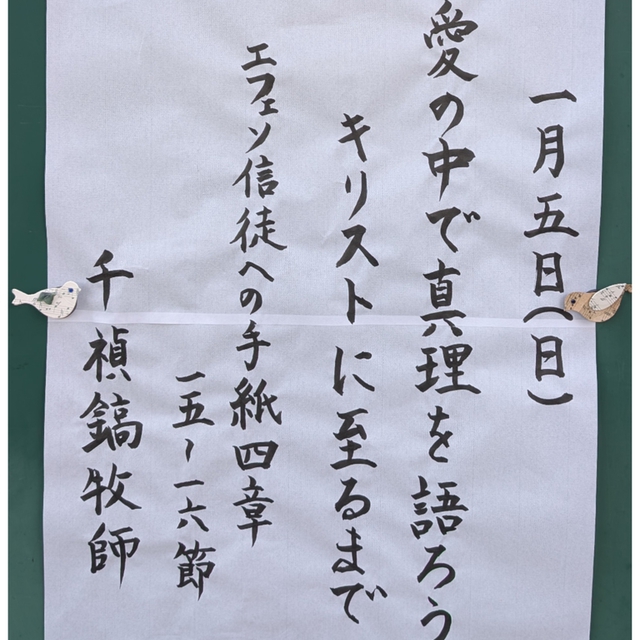 一月五日(日)
愛の中で真理を語ろう
キリストに至るまで
エフェソ信徒への手紙四章
一五~一六節
千禎鎬牧師